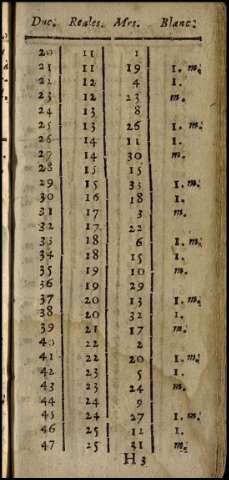 Duc: Reales. Mrs. Blanc:
20 11 1
21 11 19 1. m:
22 12 4 1.
23 12 23 m.
24 13 8
25 13 26 1. m:
26 14 11 1.
27 14 30 m.
28 15 15
29 15 33 1. m:
30 16 18 1.
31 17 3 m.
32 17 22
33 18 6 1. m:
34 18 15 1.
35 19 10 m.
36 19 29
37 20 13 1. m:
38 20 32 1.
39 21 17 m:
40 22 2
41 22 20 1. m:
42 23 5 1.
43 23 24 m.
44 24 9
45 24 27 1. m:
46 25 12 1.
47 25 31 m:
H 3